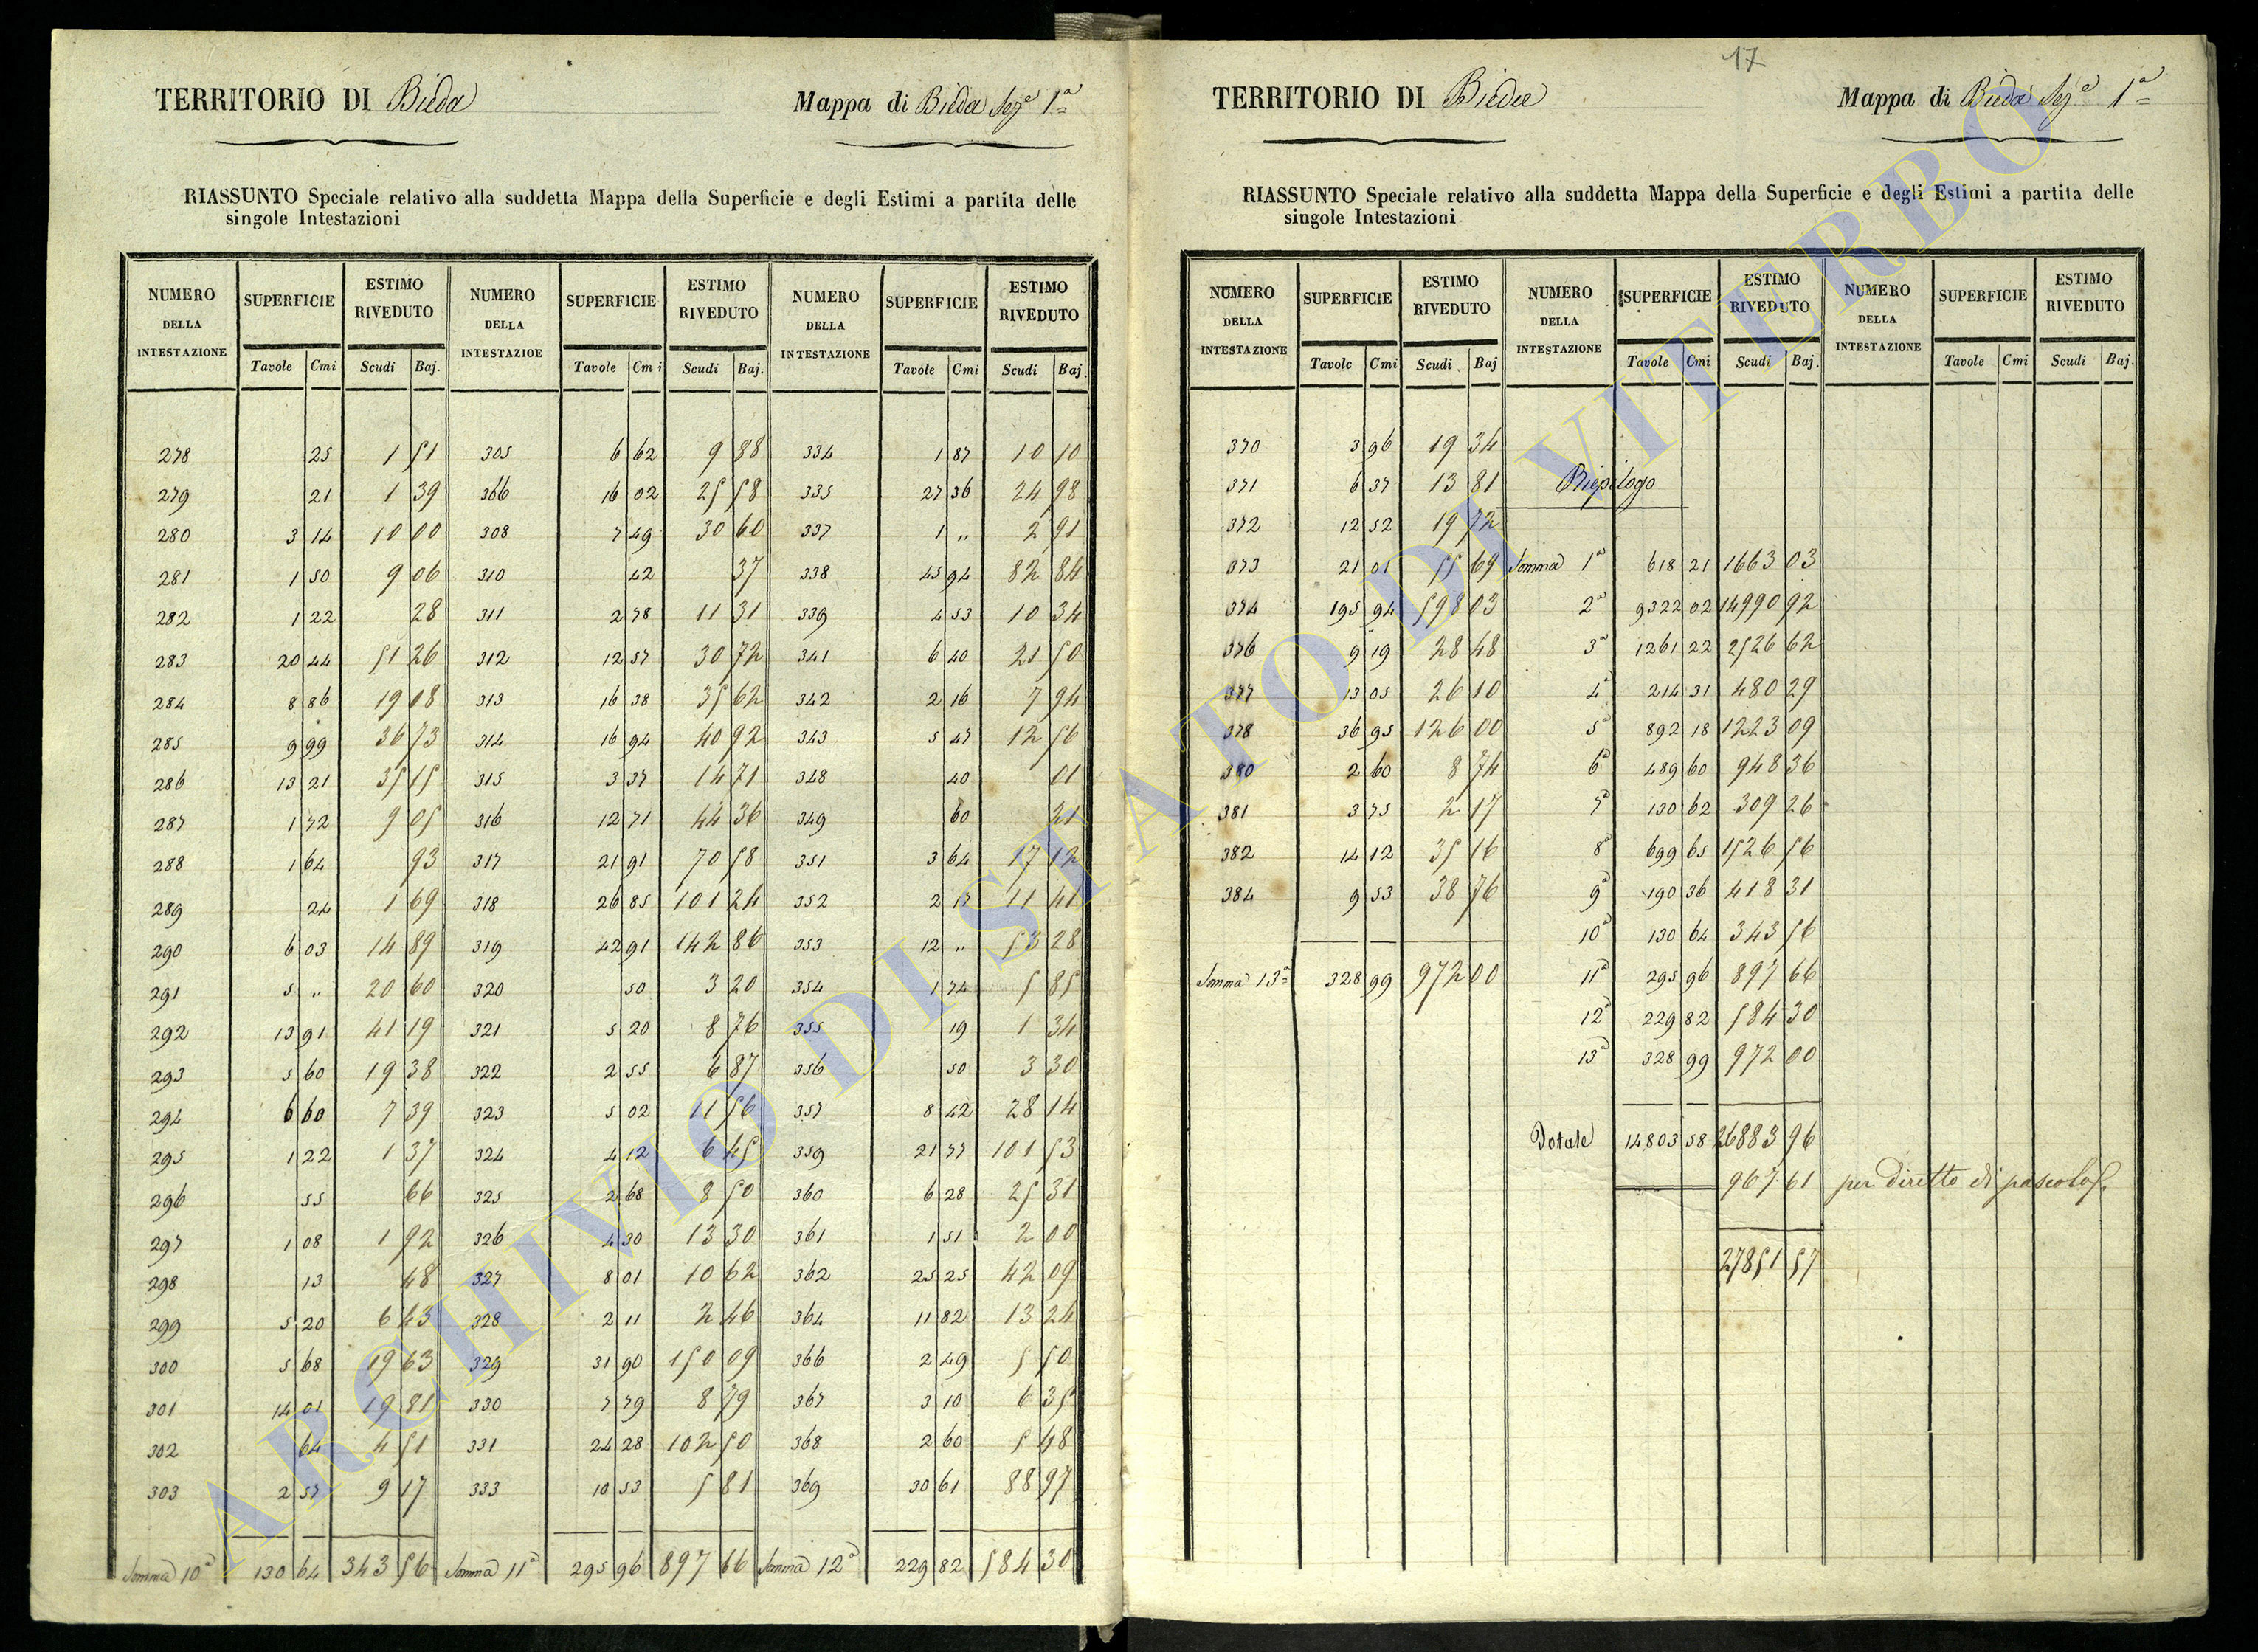 TERRITORIO DI Bieda Mappa di Bieda Sez.e 1.a
RIASSUNTO Speciale relativo alla suddetta Mappa della Superficie e degli Estimi a partita delle
singole Intestazioni
NUMERO DELLA INTESTAZIONE SUPERFICIE ESTIMO RIVEDUTO NUMERO DELLA INTESTAZIOE SUPERFICIE ESTIMO RIVEDUTO NUMERO DELLA INTESTAZIONE SUPERFICIE ESTIMO RIVEDUTO
Tavole Cmi Scudi Baj. Tavole Cmi Scudi Baj. Tavole Cmi Scudi Baj.
278 25 1 51 305 6 62 9 88 334 1 87 10 10
279 21 1 39 306 16 02 25 58 335 27 36 24 98
280 3 14 10 00 308 7 49 30 60 337 1 „ 2 91
281 1 50 9 06 310 42 37 338 45 94 82 84
282 1 22 28 311 2 78 11 31 339 4 53 10 34
283 20 44 51 26 312 12 57 30 72 341 6 40 21 50
284 8 86 19 08 313 16 38 35 62 342 2 16 7 94
285 9 99 36 73 314 16 94 40 92 343 5 47 12 56
286 13 21 35 15 315 3 37 14 71 348 40 01
287 1 72 9 05 316 12 71 44 36 349 60 21
288 1 64 93 317 21 91 70 58 351 3 64 17 12
289 24 1 69 318 26 85 101 24 352 2 17 11 41
290 6 03 14 89 319 42 91 142 86 353 12 „ 53 28
291 5 „ 20 60 320 50 3 20 354 1 74 5 85
292 13 91 41 19 321 5 20 8 76 355 19 1 34
293 5 60 19 38 322 2 55 6 87 356 50 3 30
294 6 60 7 39 323 5 02 11 56 357 8 42 28 14
295 1 22 1 37 324 4 12 6 45 359 21 77 101 53
296 55 66 325 2 68 8 50 360 6 28 25 31
297 1 08 1 92 326 4 30 13 30 361 1 51 2 00
298 13 48 327 8 01 10 62 362 25 25 42 09
299 5 20 6 43 328 2 11 2 46 364 11 82 13 24
300 5 68 19 63 329 31 90 150 09 366 2 49 5 50
301 14 01 19 81 330 7 79 8 79 367 3 10 6 35
302 64 4 51 331 24 28 102 50 368 2 60 5 48
303 2 57 9 17 333 10 53 5 81 369 30 61 88 97
Somma 10a 130 64 343 56 Somma 11a 295 96 897 66 Somma 12a 229 82 584 30
17
TERRITORIO DI Bieda Mappa di Bieda Sez.e 1.a
RIASSUNTO Speciale relativo alla suddetta Mappa della Superficie e degli Estimi a partita delle
singole Intestazioni
NUMERO DELLA INTESTAZIONE SUPERFICIE ESTIMO RIVEDUTO NUMERO DELLA INTESTAZIONE SUPERFICIE ESTIMO RIVEDUTO NUMERO DELLA INTESTAZIONE SUPERFICIE ESTIMO RIVEDUTO
Tavole Cmi Scudi Baj Tavole Cmi Scudi Baj. Tavole Cmi Scudi Baj.
370 3 96 19 34
371 6 37 13 81 Riepilogo
372 12 52 19 72
373 21 01 55 69 Somma 1a 618 21 1663 03
374 195 94 598 03 2a 9322 02 14990 92
376 9 19 28 48 3a 1261 22 2526 62
377 13 05 26 10 4a 214 31 480 29
378 36 95 126 00 5a 892 18 1223 09
380 2 60 8 74 6a 489 60 948 36
381 3 75 2 17 7a 130 62 309 26
382 14 12 35 16 8a 699 65 1526 56
384 9 53 38 76 9a 190 36 418 31
10a 130 64 343 56
Somma 13a 328 99 972 00 11a 295 96 897 66
12a 229 82 584 30
13a 328 99 972 00
Totale 14803 58 26883 96
967 61 per diretto di pascolo
27851 57
ARCHIVIO DI STATO DI VITERBO